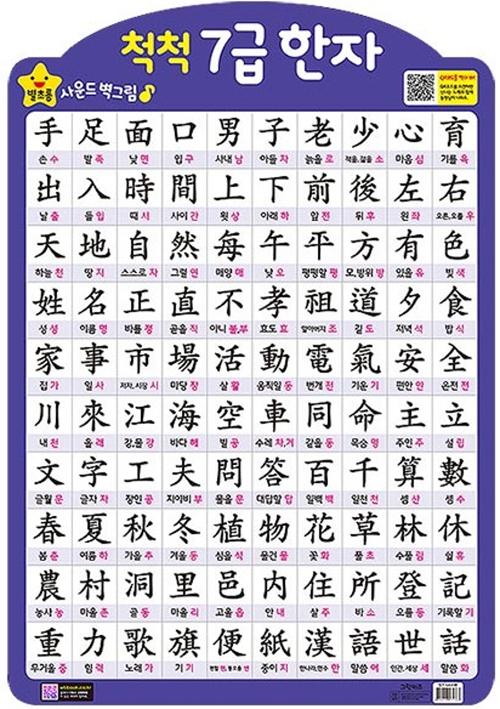 척척 7급 한자
별초롱 사운드 벽그림
手 足 面 口 男 子 老 少 心 育
손 수 발 족 낯 면 입 구 사내 남 아들 자 늙을 로 적을, 젊을 소 마음 심 기를 육
出 入 時 間 上 下 前 後 左 右
날 출 들 입 때 시 사이 간 윗 상 아래 하 앞 전 뒤 후 왼 좌 오른, 오를 우
天 地 自 然 每 午 平 方 有 色
하늘 천 땅 지 스스로 자 그럴 연 매양 매 낮 오 평평할 평 모, 방위 방 있을 유 빛 색
姓 名 正 直 不 孝 祖 道 夕 食
성 성 이름 명 바를 정 곧을 직 아니 불,부 효도 효 할아버지 조 길 도 저녁 석 밥 식
家 事 市 場 活 動 電 氣 安 全
집 가 일 사 저자, 시장 시 마당 장 살 활 움직일 동 번개 전 기운 기 편안 안 온전 전
川 來 江 海 空 車 同 命 主 立
내 천 올 래 강,물 강 바다 해 빌 공 수레 차,거 같을 동 목숨 명 주인 주 설 립
文 字 工 夫 問 答 百 千 算 數
글월 문 글자 자 장인 공 지아비 부 물을 문 대답할 답 일백 백 일천 천 셈 산 셈 수
春 夏 秋 冬 植 物 花 草 林 休
봄 춘 여름 하 가을 추 겨울 동 심을 식 물건 물 꽃 화 풀 초 수풀 림 쉴 휴
農 村 洞 里 邑 內 住 所 登 記
농사 농 마을 촌 골 동 마을 리 고을 읍 안 내 살 주 바 소 오를 등 기록할 기
重 力 歌 旗 便 紙 漢 語 世 話
무거울 중 힘 력 노래 가 기 기 편할 편, 똥오줌 변 종이 지 한나라,한수 한 말씀 어 인간, 세상 세 말씀 화